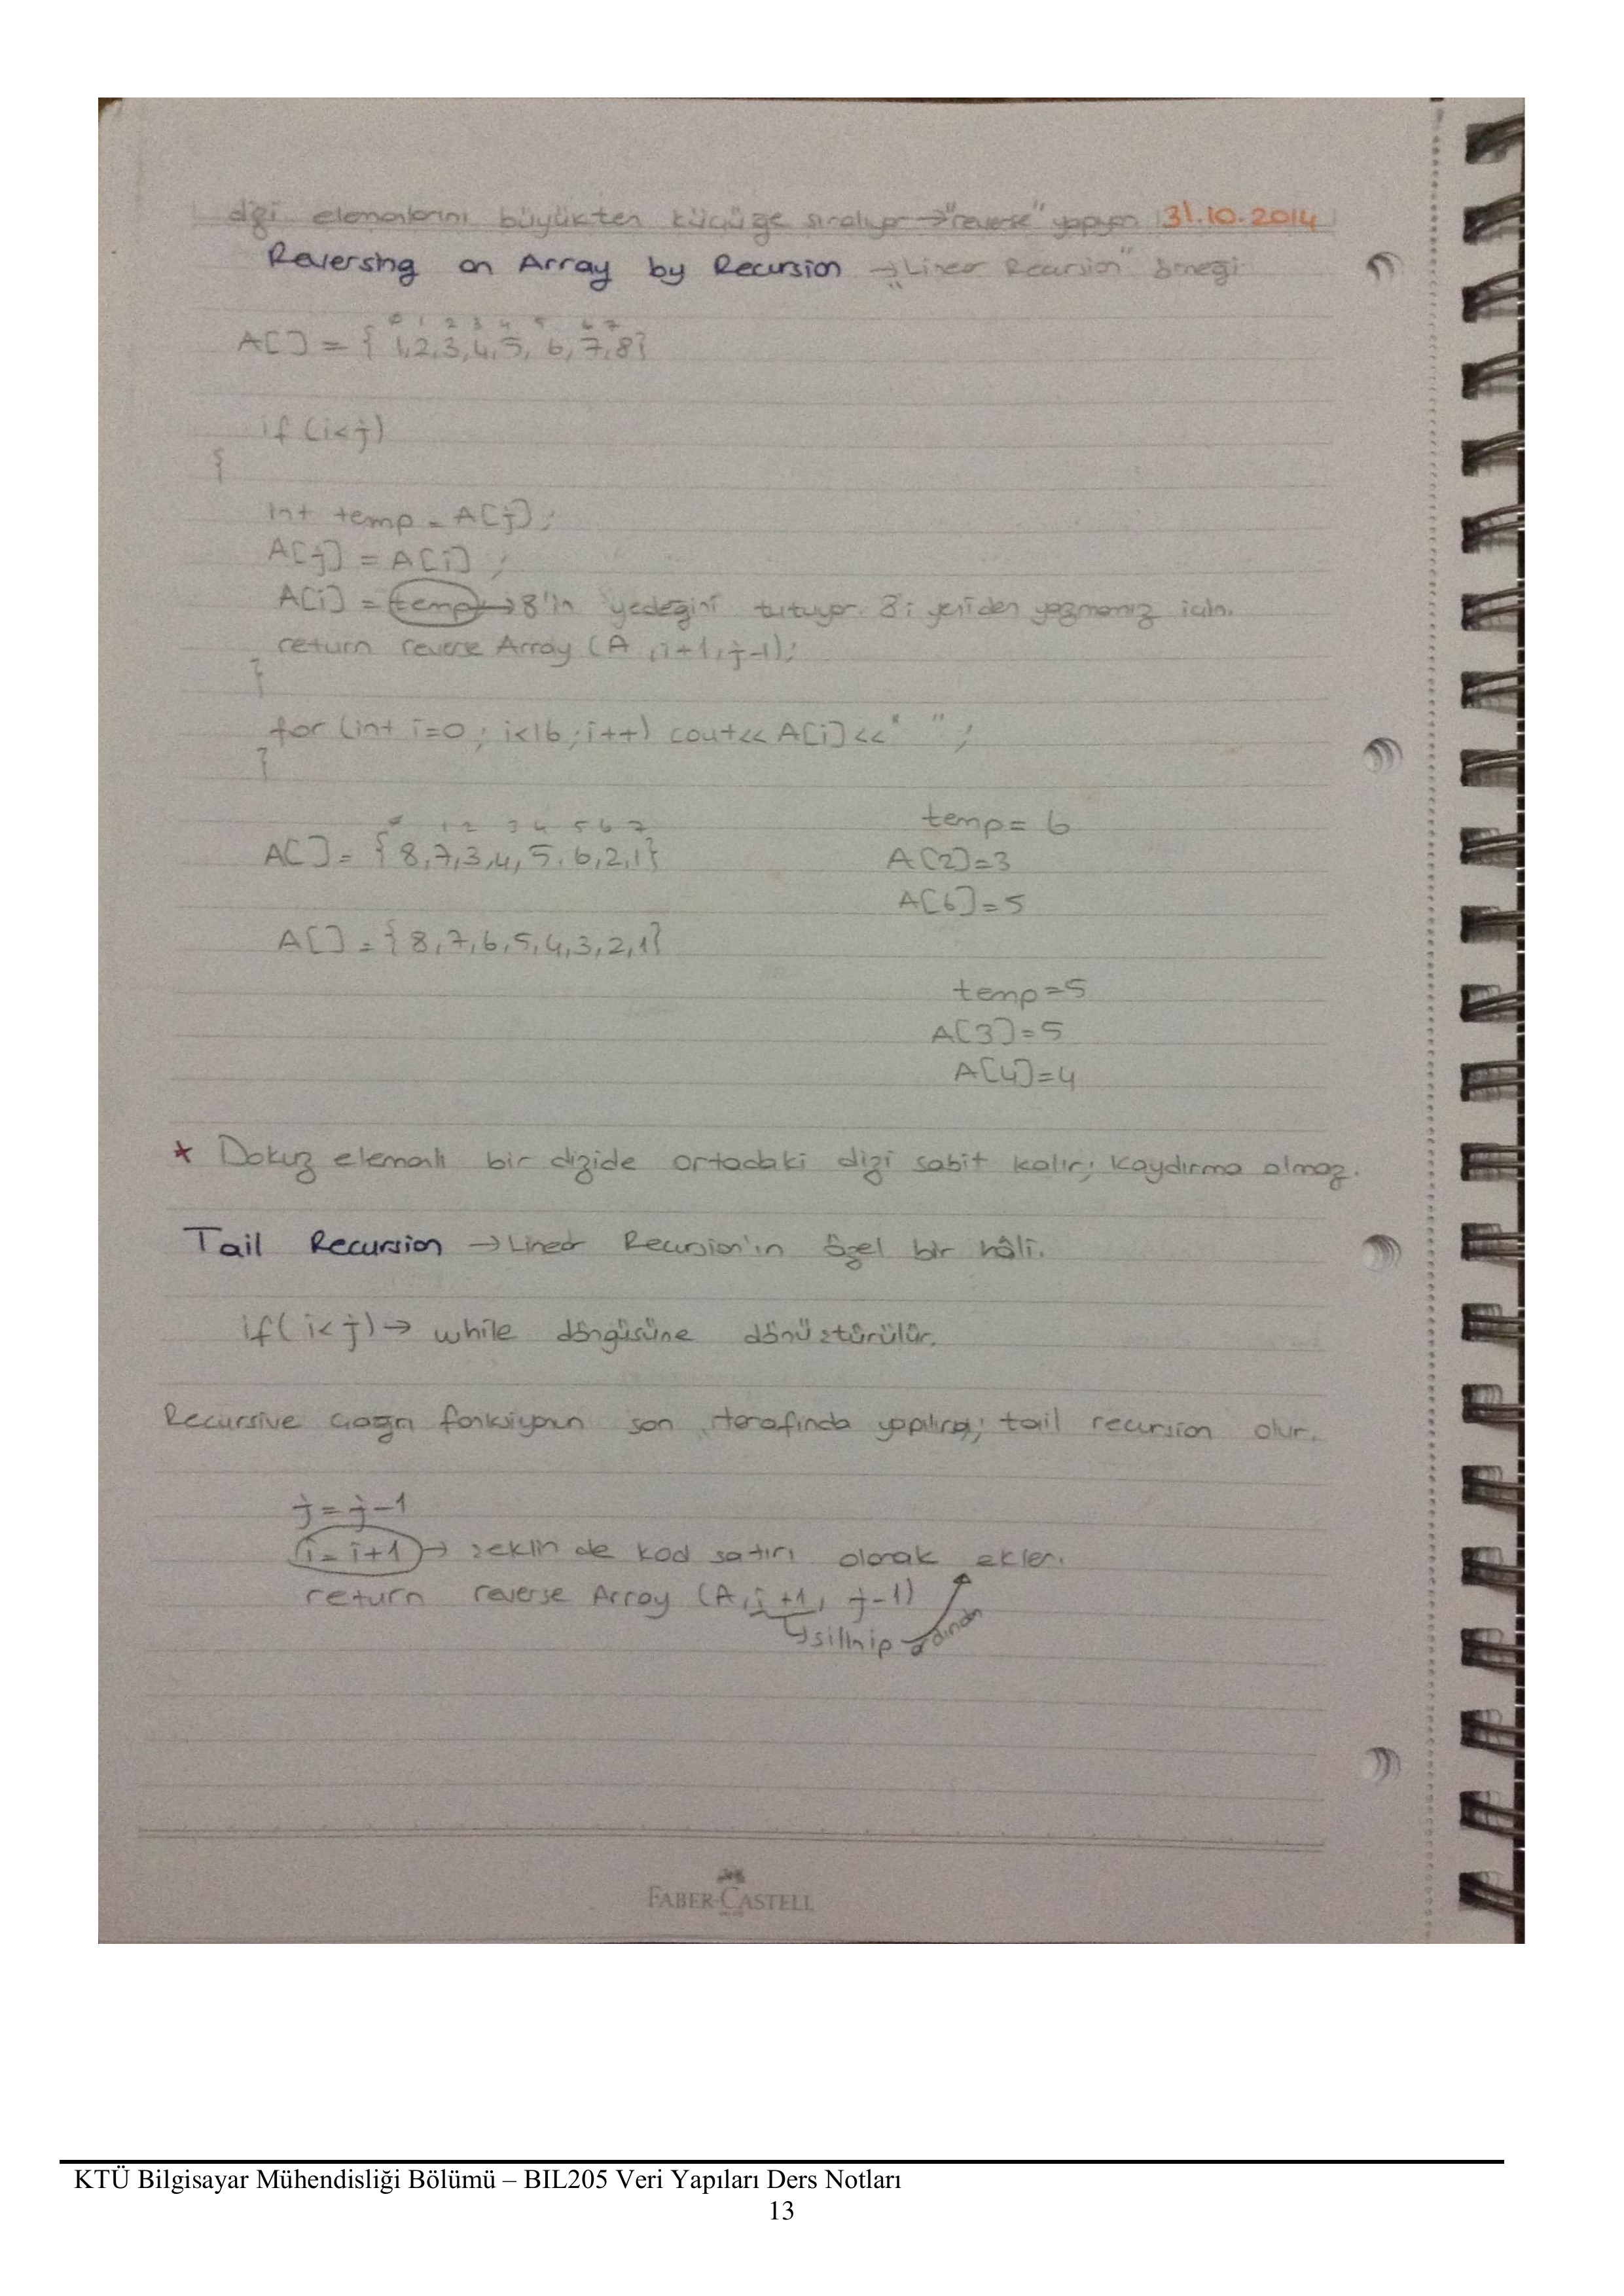 dizi elemanlarını büyükten küçüğe sıralıyor → "reverse" yapıyor 31.10.2014
Reversing an Array by Recursion → "Lineer Recursion" örneği
0 1 2 3 4 5 6 7
A[] = { 1,2,3,4,5, 6,7,8}
if (i<j)
{
int temp = A[j];
A[j] = A[i] ;
A[i] = temp → 8'in yedeğini tutuyor. 8'i yeniden yazmamız için.
return reverse Array (A ,i+1,j-1);
}
for (int i=0 ; i<16 ; i++) cout<< A[i] <<" " ;
}
0 1 2 3 4 5 6 7
A[] = { 8,7,3,4,5,6,2,1}
temp = 6
A[2]=3
A[6]=5
A[] = { 8,7,6,5,4,3,2,1}
temp=5
A[3]=5
A[4]=4
* Dokuz elemanlı bir dizide ortadaki dizi sabit kalır; kaydırma olmaz.
Tail Recursion → Lineer Recursion'ın özel bir hâli.
if( i< j) → while döngüsüne dönüştürülür.
Recursive çağrı fonksiyonun son tarafında yapılırsa; tail recursion olur.
j = j-1
i = i+1 → şeklin de kod satırı olarak ekler.
return reverse Array (A, i +1, j-1)
↳ silinip ardından
FABER-CASTELL
KTÜ Bilgisayar Mühendisliği Bölümü – BIL205 Veri Yapıları Ders Notları
13